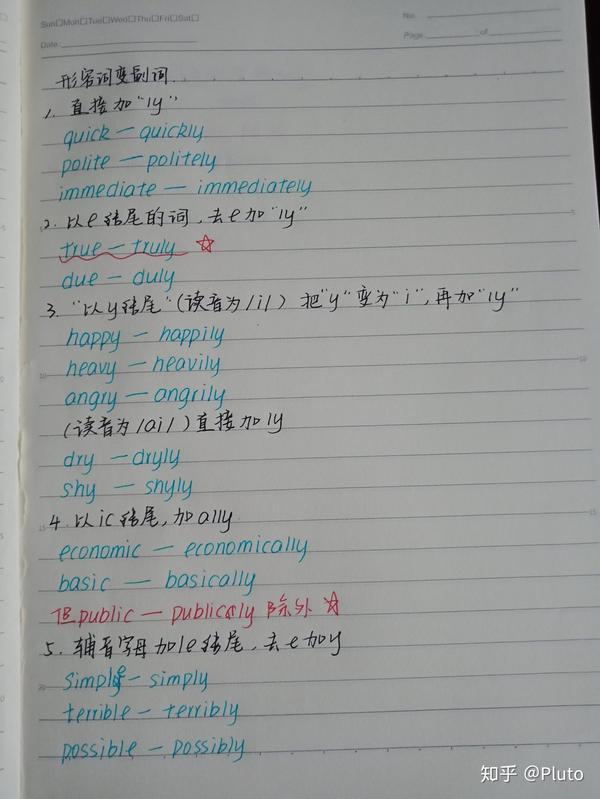 Sun□Mon□Tue□Wed□Thu□Fri□Sat□
No.
Date:
Page of
形容词变副词
1. 直接加“ly”
quick — quickly
polite — politely
immediate — immediately
2. 以e结尾的词, 去e加“ly”
true — truly ☆
due — duly
3. “以y结尾”(读音为/i/) 把“y”变为“i”, 再加“ly”
happy — happily
heavy — heavily
angry — angrily
(读音为/ai/) 直接加ly
dry — dryly
shy — shyly
4. 以ic结尾, 加ally
economic — economically
basic — basically
但public — publicly 除外 ☆
5. 辅音字母加le结尾, 去e加y
simple — simply
terrible — terribly
possible — possibly
知乎 @Pluto